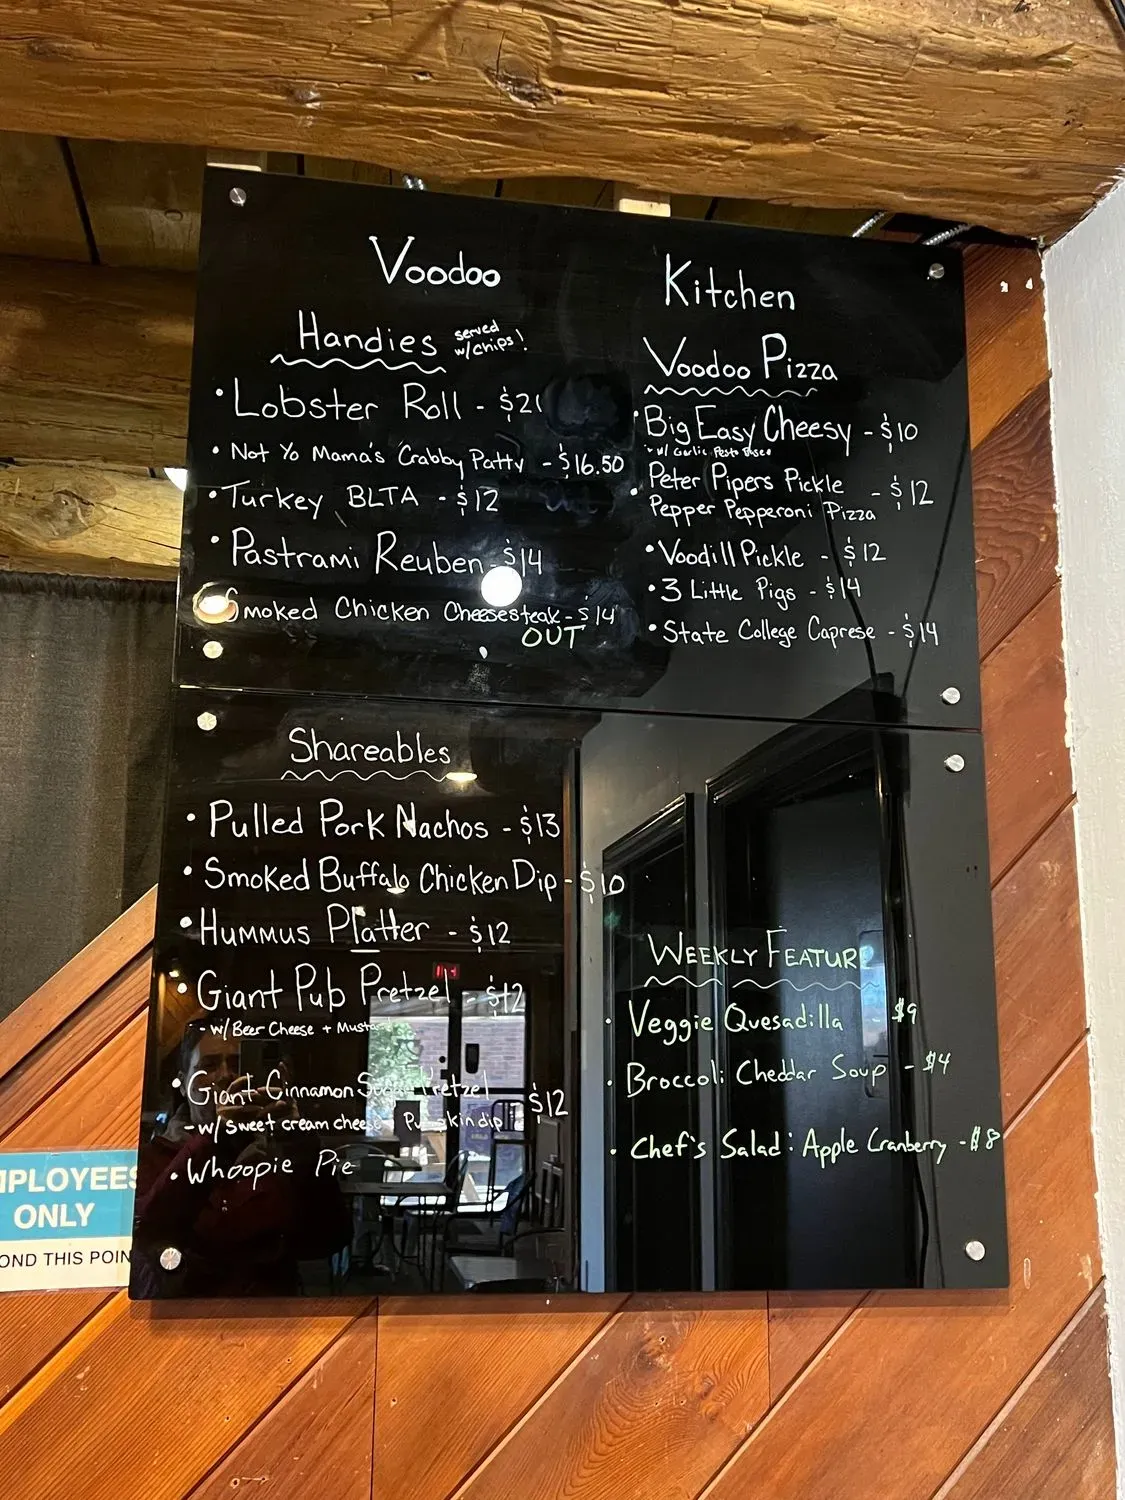 Voodoo Kitchen
Handies served
w/chips!
• Lobster Roll - $21
• Not Yo Mama's Crabby Patty - $16.50
• Turkey BLTA - $12
• Pastrami Reuben - $14
Smoked Chicken Cheesesteak - $14
OUT
Voodoo Pizza
• Big Easy Cheesy - $10
w/ Garlic Pesto Base
• Peter Pipers Pickle
Pepper Pepperoni Pizza - $12
• Voodill Pickle - $12
• 3 Little Pigs - $14
• State College Caprese - $14
Shareables
• Pulled Pork Nachos - $13
• Smoked Buffalo Chicken Dip - $10
• Hummus Platter - $12
• Giant Pub Pretzel - $12
- w/ Beer Cheese + Mustard
• Giant Cinnamon Sugar Pretzel
- w/ sweet cream cheese Pumpkin dip $12
• Whoopie Pie
WEEKLY FEATURE
• Veggie Quesadilla $9
• Broccoli Cheddar Soup - $4
• Chef's Salad: Apple Cranberry - $8
MPLOYEES
ONLY
OND THIS POIN